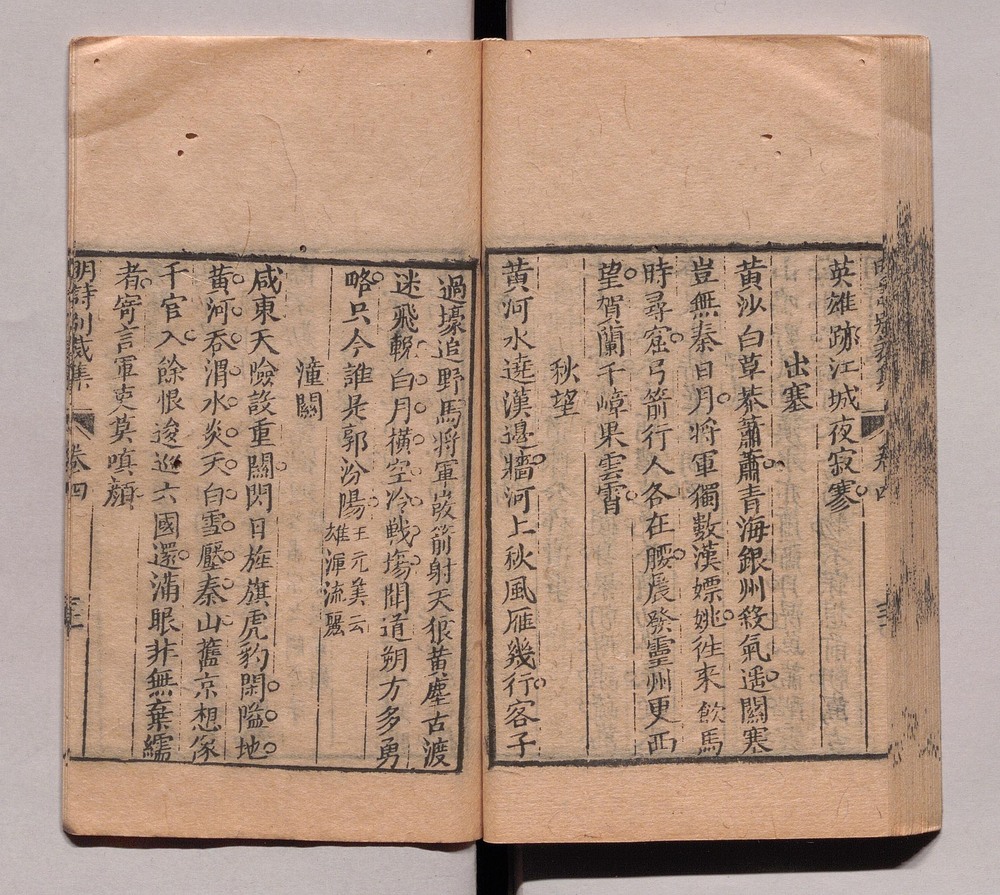 英雄跡江城夜寂寥
出塞
黃沙白草莽蕭蕭青海銀州殺氣遙關塞
豈無秦日月將軍獨數漢嫖姚徃來飲馬
時尋窟弓箭行人各在腰晨發靈州更西
望賀蘭千嶂果雲霄
秋望
黃河水遶漢邊牆河上秋風雁幾行客子
過壕追野馬將軍弢箭射天狼黃塵古渡
迷飛輓白月橫空冷戰塲聞道朔方多勇
略只今誰是郭汾陽王元美云
雄渾流麗
潼關
咸東天險設重關閃日旌旗虎豹閑隘地
黃河吞渭水炎天白雪壓秦山舊京想像
千官入餘恨逡巡六國還滿眼非無棄繻
者寄言軍吏莫嗔顏
明詩別裁集 卷四